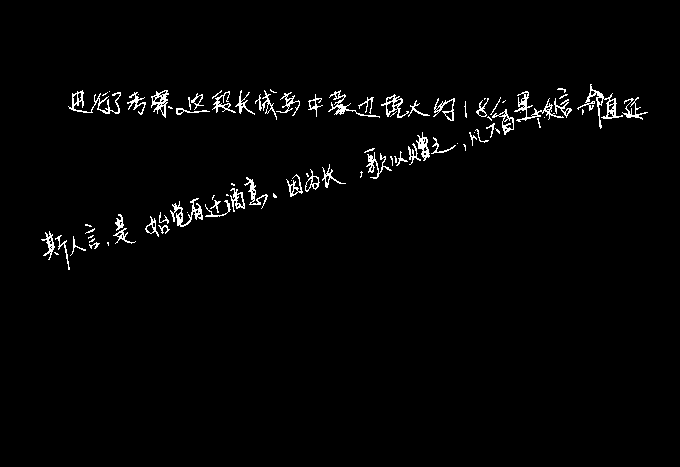 进行了考察。这段长城离中蒙边境大约18公里 直延
斯人言，是 始觉有迁谪意。因为长 ，歌以赠之，凡六百一十 言